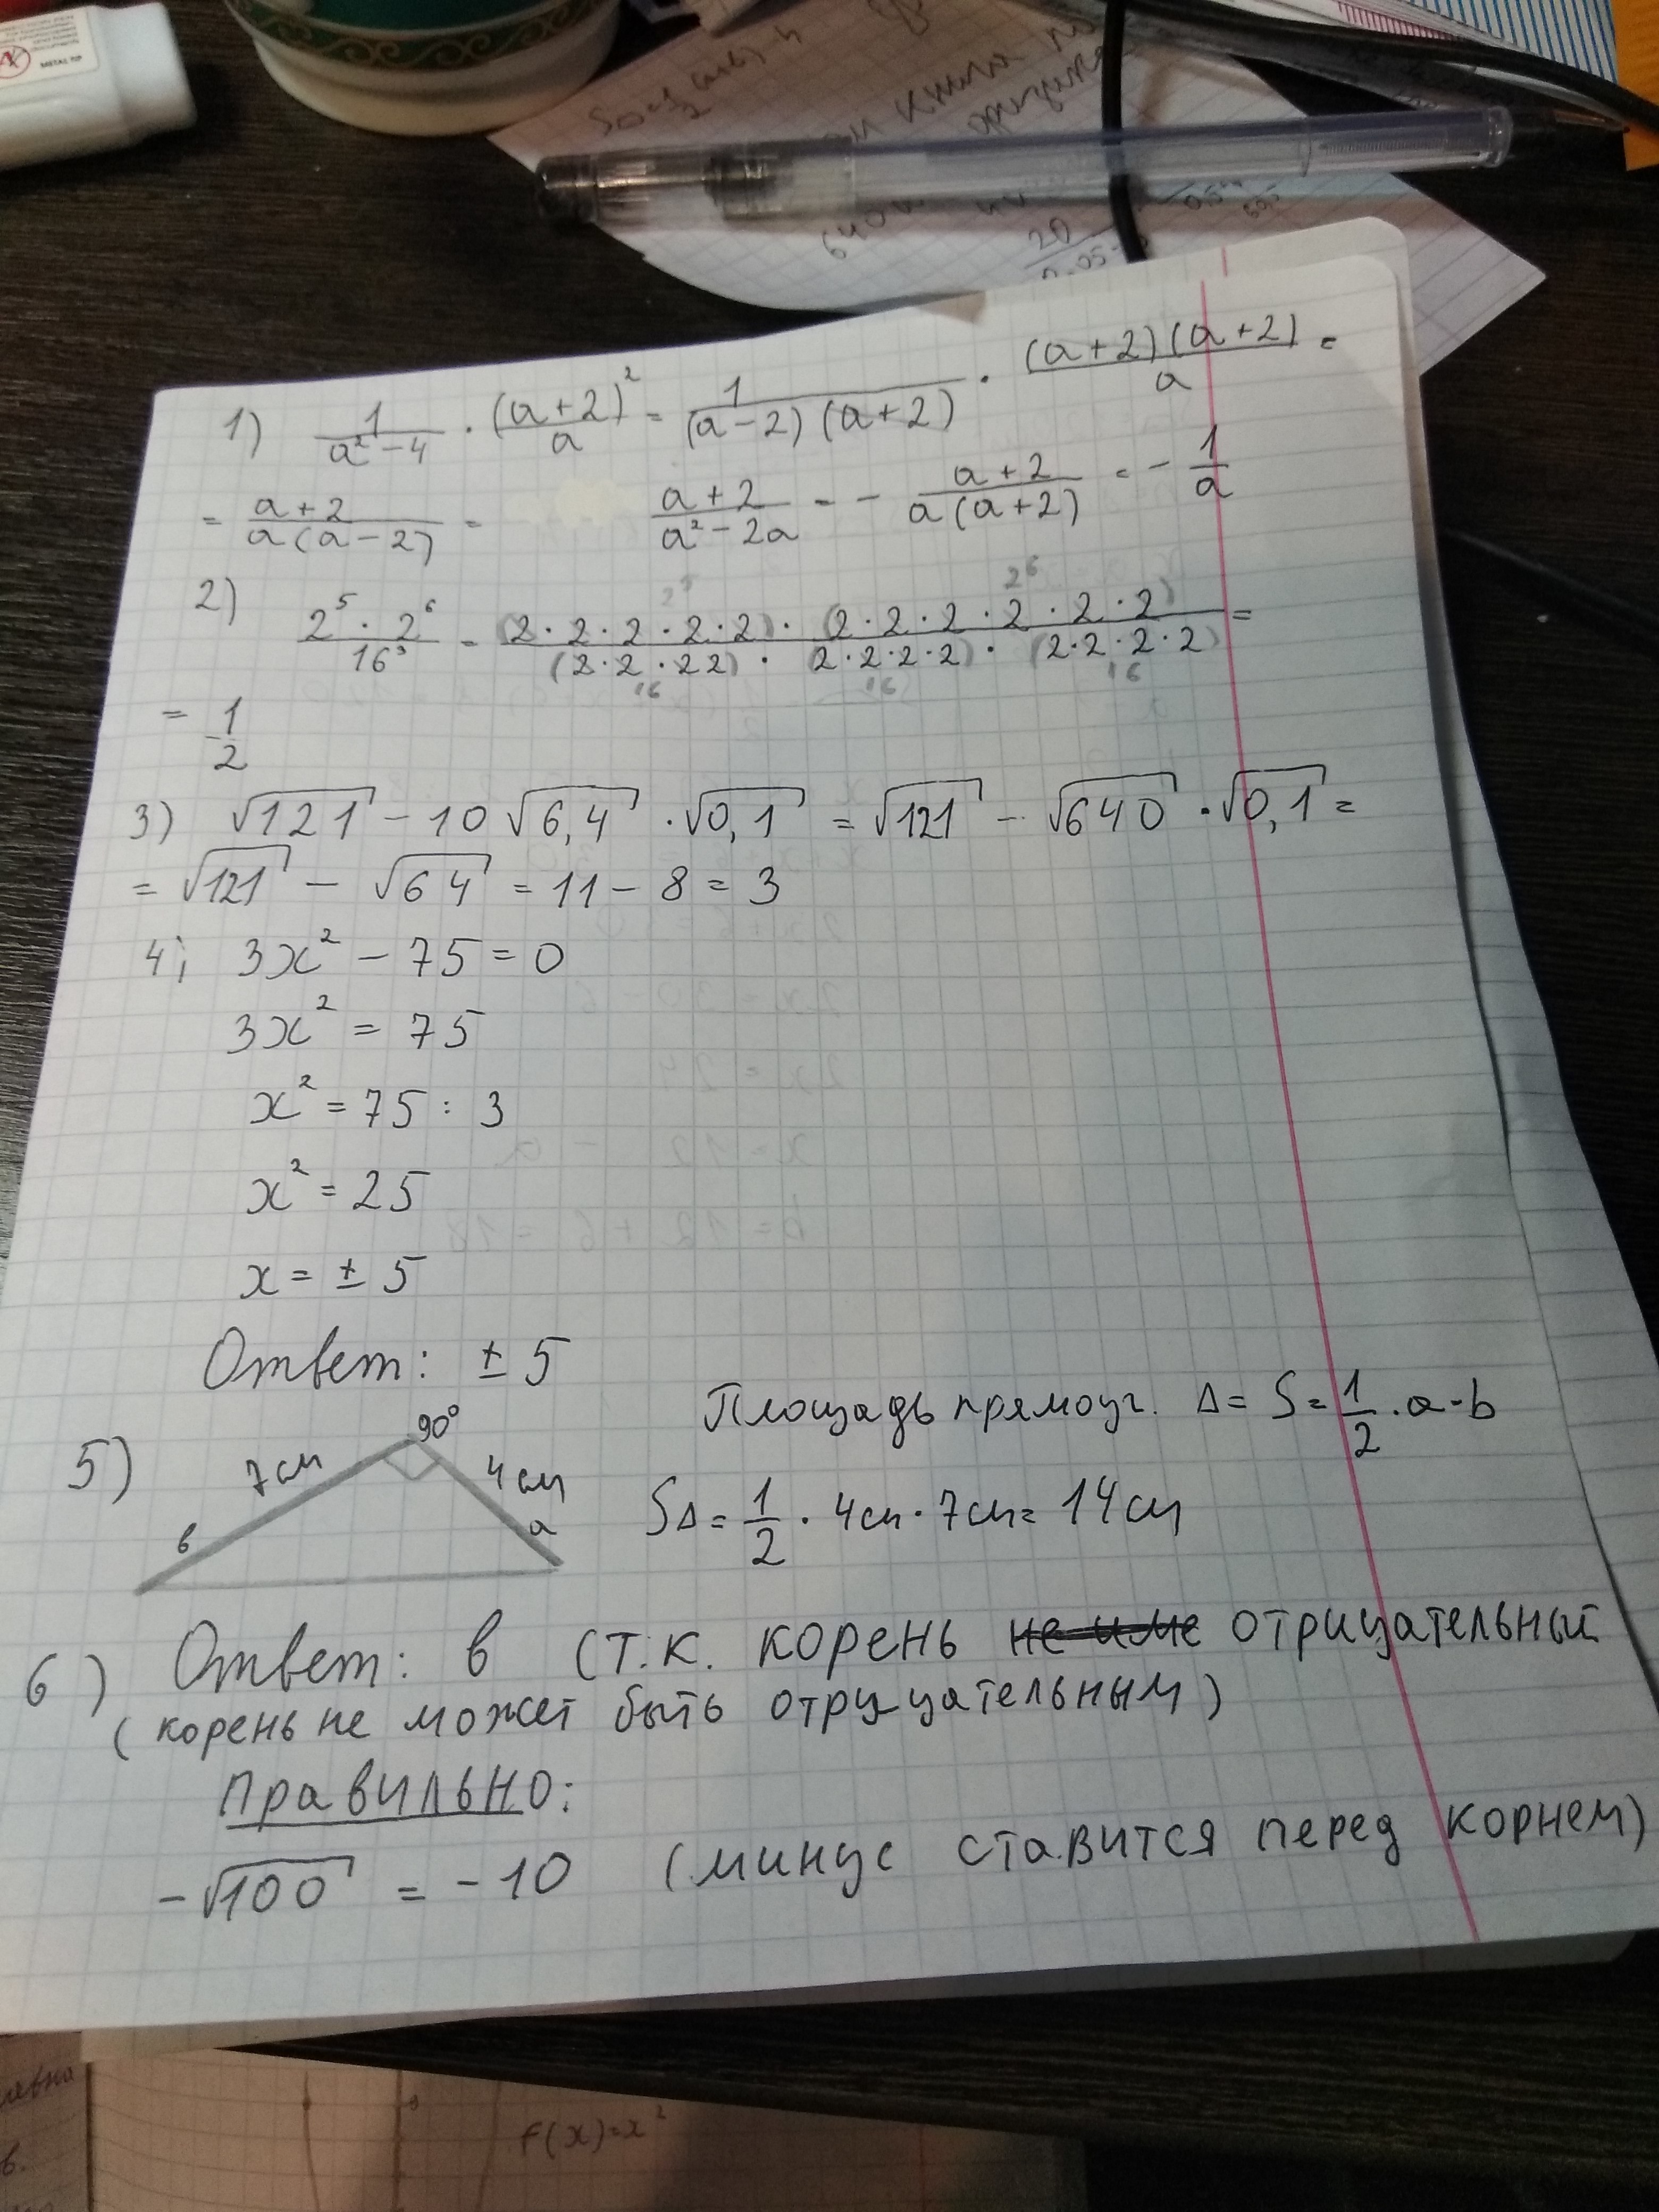 METAL TIP
20
1) 1/(a²-4) · (a+2)²/a = 1/((a-2)(a+2)) · (a+2)(a+2)/a =
= (a+2)/(a(a-2)) = (a+2)/(a²-2a) = - (a+2)/(a(a+2)) = - 1/a
2) 2⁵·2⁶/16³ = (2·2·2·2·2)·(2·2·2·2·2·2)/((2·2·22)·(2·2·2·2)·(2·2·2·2)) =
2⁶
16 16 16
= 1/2
3) √121 - 10√6,4 · √0,1 = √121 - √640 · √0,1 =
= √121 - √64 = 11 - 8 = 3
4) 3x² - 75 = 0
3x² = 75
x² = 75 : 3
x² = 25
x = ± 5
Ответ: ± 5
5) 7см 90° 4см в а
Площадь прямоуг. Δ = S = 1/2 · a · b
SΔ = 1/2 · 4см · 7см = 14см
6) Ответ: в (т.к. корень не име отрицательный
(корень не может быть отрицательным)
Правильно:
-√100 = -10 (минус ставится перед корнем)
f(x)=x²